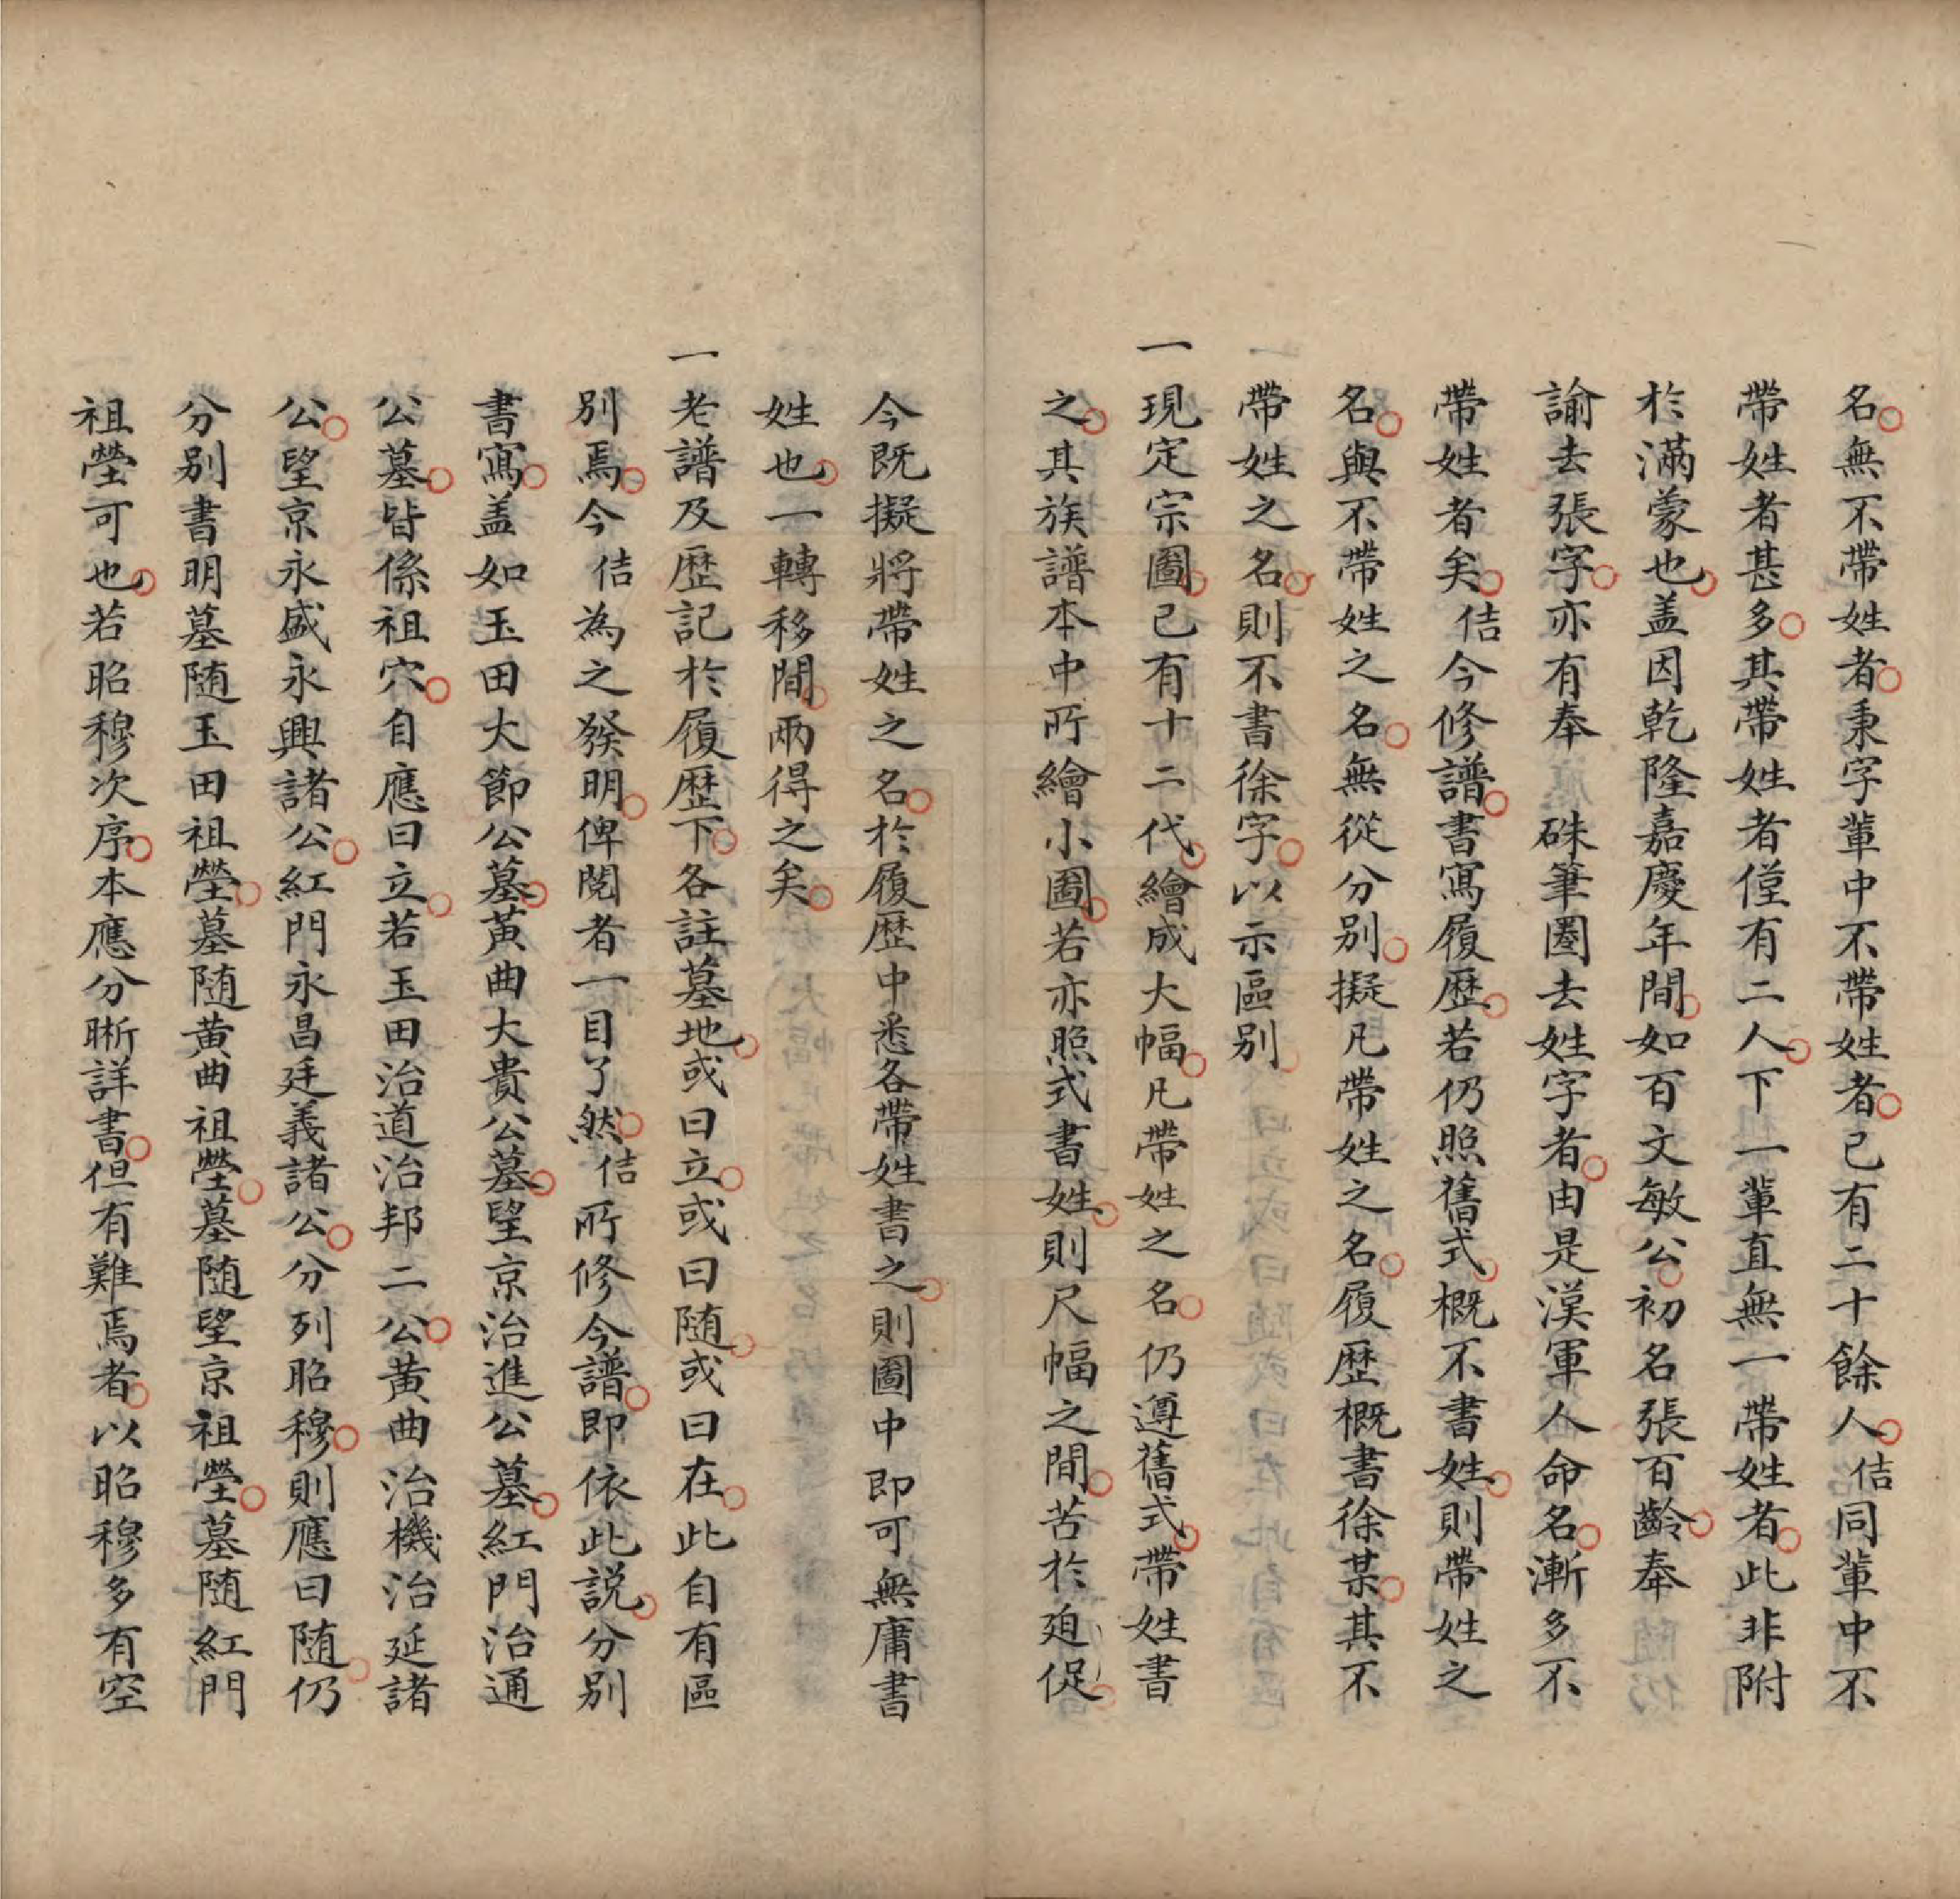 名無不帶姓者秉字軰中不帶姓者已有二十餘人佶同軰中不
帶姓者甚多其帶姓者僅有二人下一軰直無一帶姓者此非附
於滿蒙也盖因乾隆嘉慶年間如百文敏公初名張百齡奉
諭去張字亦有奉硃筆圈去姓字者由是漢軍人命名漸多不
帶姓者矣佶今修譜書寫履歷若仍照舊式概不書姓則帶姓之
名與不帶姓之名無從分别擬凡帶姓之名履歷概書徐某其不
帶姓之名則不書徐字以示區别
一現定宗圖已有十二代繪成大幅凡帶姓之名仍遵舊式帶姓書
之其族譜本中所繪小圖若亦照式書姓則尺幅之間苦於廹促
今既擬將帶姓之名於履歷中悉各帶姓書之則圖中即可無庸書
姓也一轉移間兩得之矣
一老譜及歷記於履歷下各註墓地或曰立或曰随或曰在此自有區
别焉今佶為之發明俾閱者一目了然佶所修今譜即依此説分别
書寫盖如玉田大節公墓黄曲大貴公墓望京治進公墓紅門治通
公墓皆係祖穴自應曰立若玉田治道治邦二公黄曲治機治延諸
公望京永盛永興諸公紅門永昌廷義諸公分列昭穆則應曰随仍
分别書明墓随玉田祖塋墓随黄曲祖塋墓随望京祖塋墓随紅門
祖塋可也若昭穆次序本應分晰詳書但有難焉者以昭穆多有空